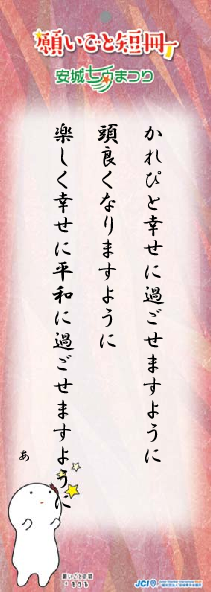 願いごと短冊
安城七夕まつり
かれぴと幸せに過ごせますように
頭良くなりますように
楽しく幸せに平和に過ごせますように
あ
願いごとの妖精
きーぼー
JCI